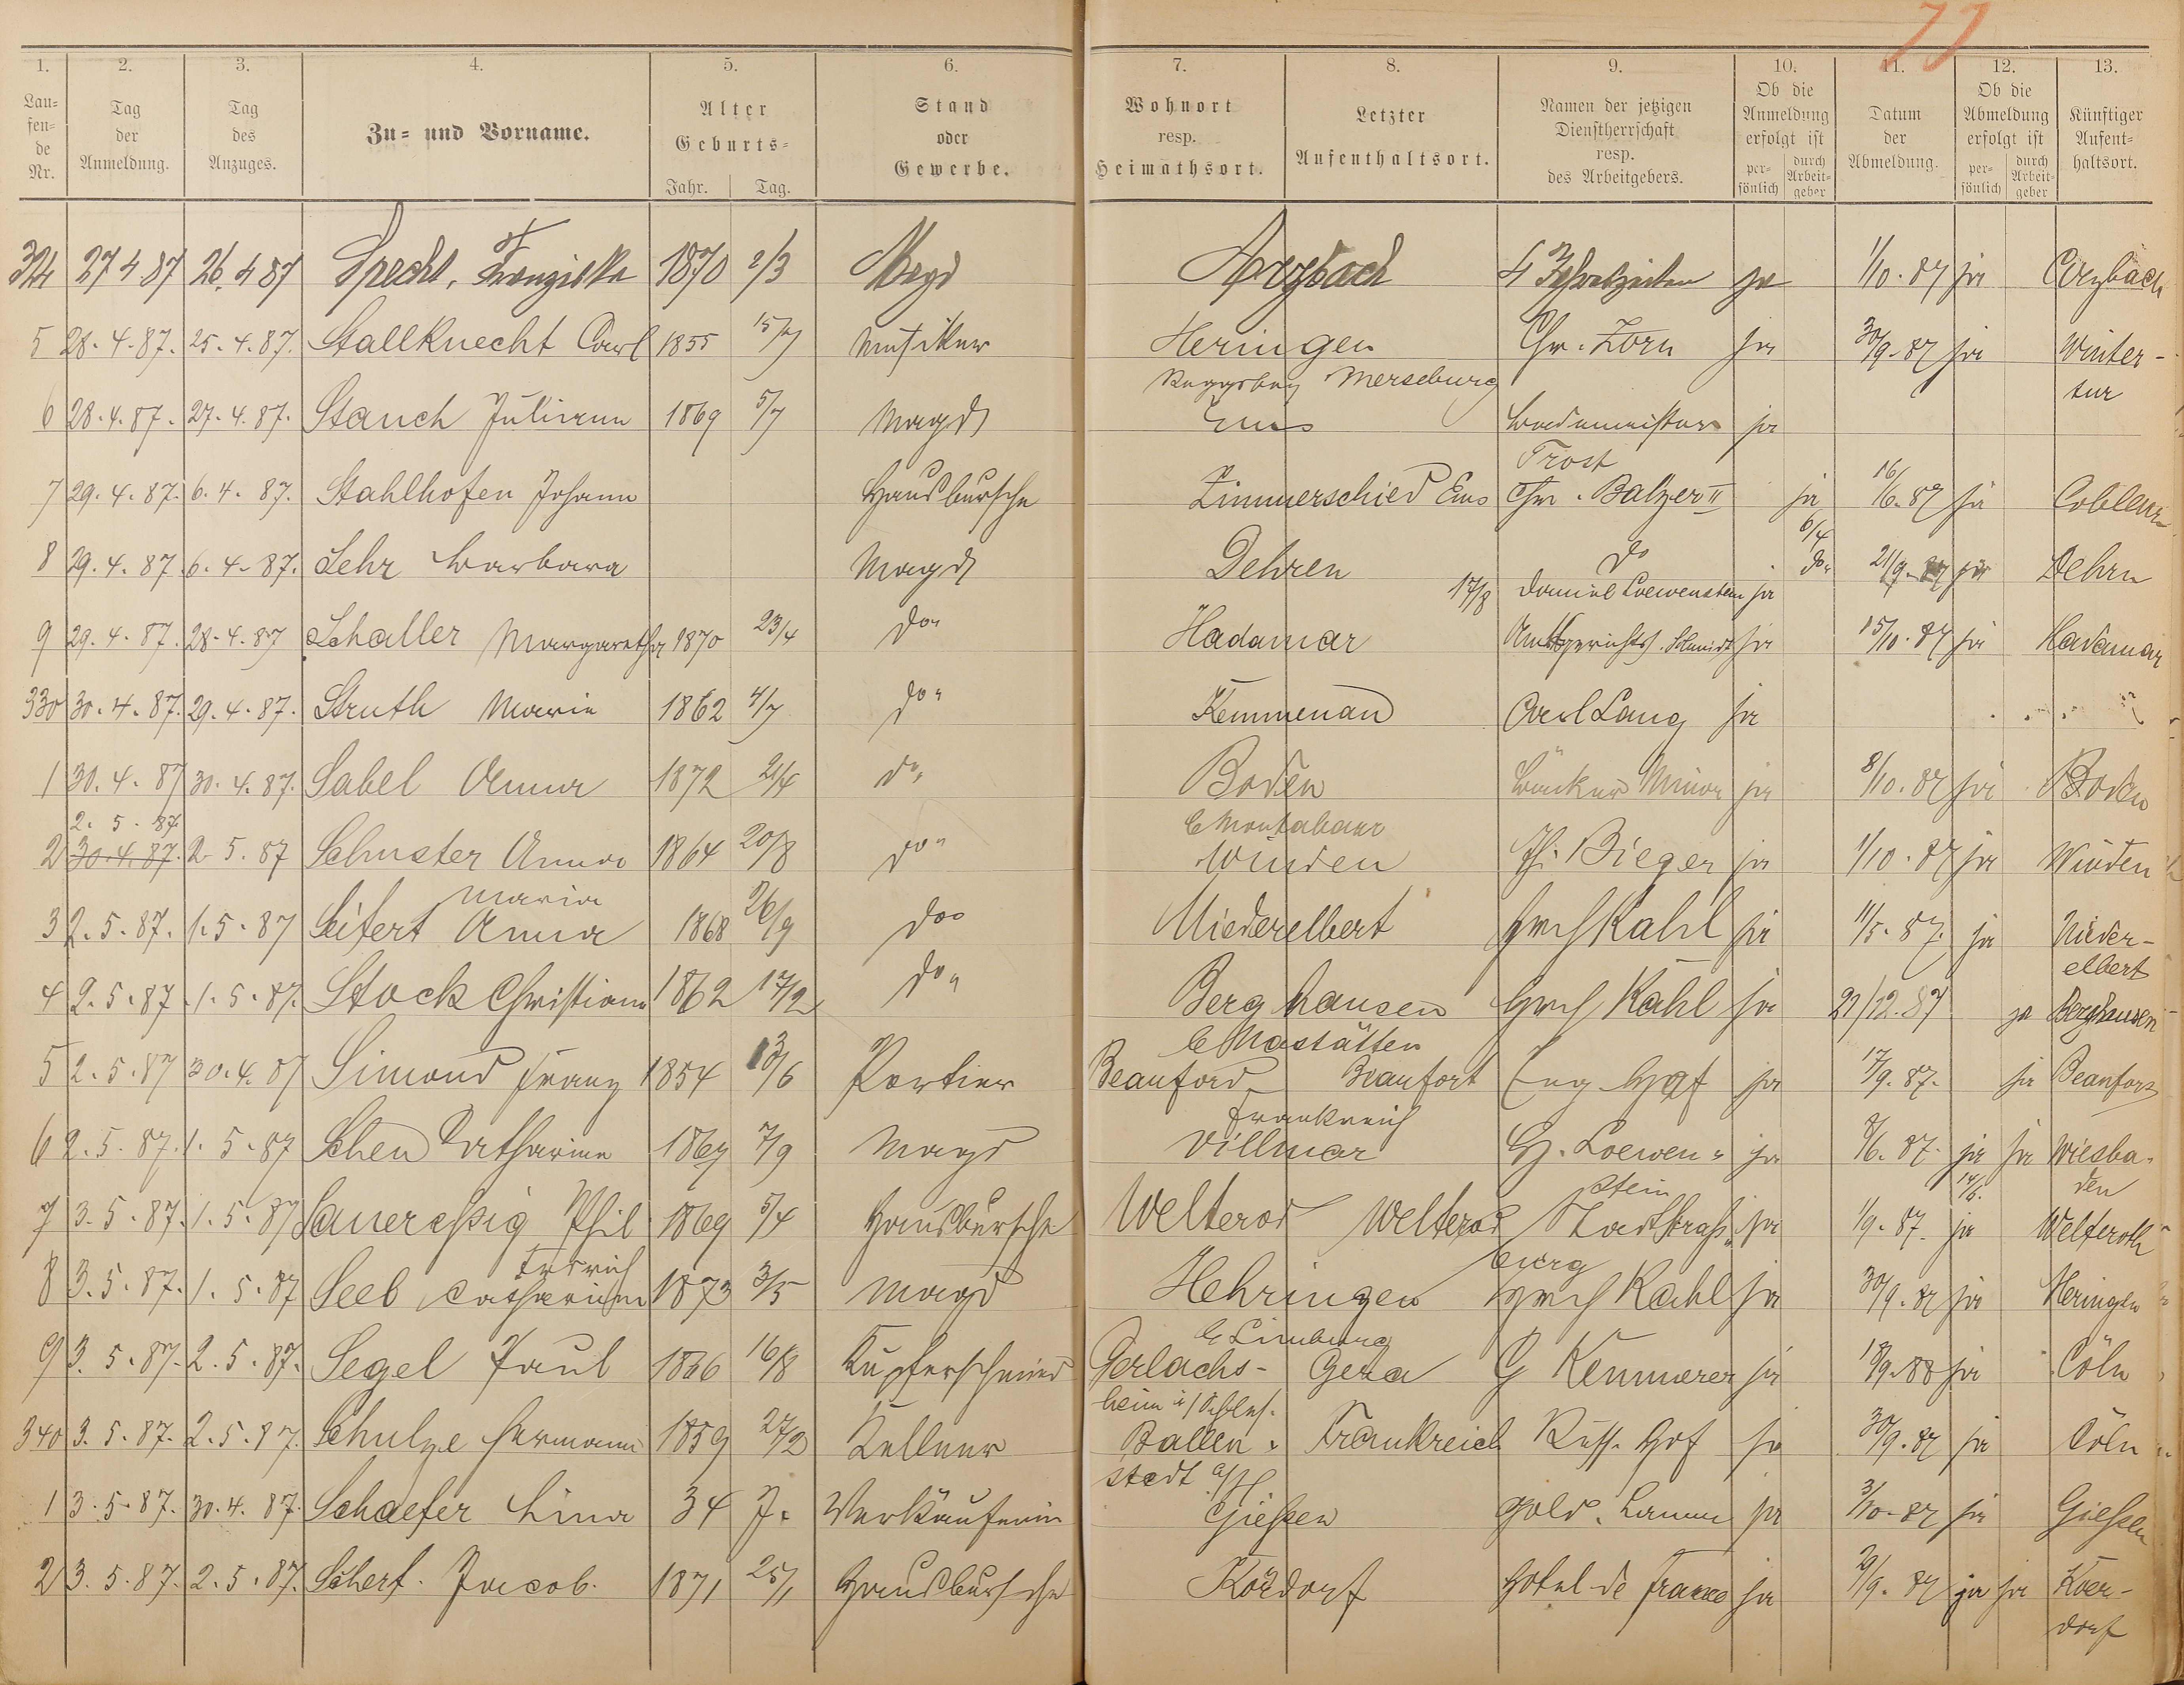 77
1. 2. 3. 4. 5. 6. 7. 8. 9. 10. 11. 12. 13.
Lau=fen=de Nr. Tag der Anmeldung. Tag des Anzuges. Zu= und Vorname. Alter Geburts= Jahr. Tag. Stand oder Gewerbe. Wohnort resp. Heimathsort. Letzter Aufenthaltsort. Namen der jetzigen Dienstherrschaft resp. des Arbeitgebers. Ob die Anmeldung erfolgt ist per=sönlich durch Arbeit=geber Datum der Abmeldung. Ob die Abmeldung erfolgt ist per=sönlich durch Arbeit=geber Künftiger Aufent=haltsort.
324 27 4 87 26. 4 87 Specht, Franziska 1870 2/3 Magd Arzbach 4 Jahreszeiten ja 1/10. 87 ja Arzbach
5 28. 4. 87. 25. 4. 87. Stallknecht Carl 1855 15/7 Musiker Heringen Chr. Zorn ja 30/9. 87 ja Winter-
Merseburg tur
6 28. 4. 87. 27. 4. 87. Stauch Juliane 1869 5/7 Magd Ems Bademeister ja
Trost
7 29. 4. 87. 6. 4. 87. Stahlhofen Johann Hausbursche Zimmerschied Ems Chr. Balzer II ja 16/6. 87 ja Coblenz
6/4
8 29. 4. 87. 6. 4. 87. Lehr Barbara Magd Dehren do do. 21/9. 87 ja Dehrn
17/8 Daniel Loewenstein ja
9 29. 4. 87. 28. 4. 87 Schaller Margaretha 1870 23/4 do. Hadamar Amtsgerichts. Schmidt ja 15/10. 87 ja Hadamar
330 30. 4. 87. 29. 4. 87. Struth Marie 1862 4/7 do. Kemmenau Carl Lang ja
1 30. 4. 87 30. 4. 87. Sabel Anna 1872 21/4 do. Boden Bäcker Minor ja 8/10. 87 ja Boden
2. 5. 87. b Montabaur
2 30. 4. 87. 2. 5. 87 Schuster Anna 1864 20/8 do. Winden Ph. Bieger ja 1/10. 87 ja Winden
Maria
3 2. 5. 87. 1. 5. 87 Seifert Anna 1868 26/9 do. Niederelbert Hrch Kahl ja 11/5. 87. ja Nieder-
elbert
4 2. 5. 87. 1. 5. 87. Stock Christiane 1862 17/2 do. Berghausen Hrch Kahl ja 21/12. 87 ja Berghausen
b Nastätten
5 2. 5. 87 30. 4. 87 Simond Franz 1854 13/6 Portier Beauford Beaufort Eng. Hof ja 17/9. 87. ja Beaufort
Frankreich
6 2. 5. 87. 1. 5. 87 Scheu Catharine 1869 7/9 Magd Villmar H. Loewen- ja 8/6. 87. ja ja Wiesba-
stein 14/6. den
7 3. 5. 87. 1. 5. 87 Saueressig Phil 1869 5/4 Hausbursche Welterod Welterod Stadt Straß- ja 1/9. 87. ja Welteroth
Fredrich burg
8 3. 5. 87. 1. 5. 87 Seeb Catharine 1873 3/5 Magd Hehringen Hrch Kahl ja 30/9. 87 ja Heringen
b Limburg
9 3. 5. 87. 2. 5. 87. Segel Paul 1866 16/8 Kupferschmied Gerlachs- Gera G Kemmerer ja 18/9. 88 ja Cöln
heim i/Schles.
340 3. 5. 87. 2. 5. 87. Schulze Hermann 1859 27/2 Kellner Ballen- Frankreich Russ. Hof ja 30/9. 87 ja Cöln
stedt a/H
1 3. 5. 87. 30. 4. 87. Schaefer Lina 34 J. Verkäuferin Gießen Gold. Lamm ja 3/10. 87 ja Gießen
2 3. 5. 87. 2. 5. 87. Scherf. Jacob. 1871 25/1 Hausbursche Kördorf Hotel de France ja 21/9. 87 ja ja Koer-
dorf